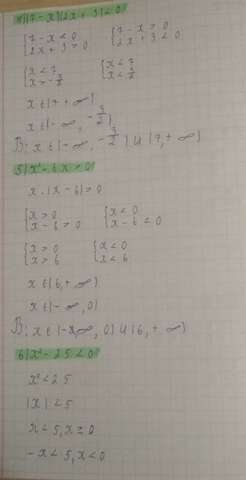 4)(7-x)(2x+3)<0
{7-x<0 2x+3>0 {7-x>0 2x+3<0
{x<7 x>-3/2 {x<7 x<3/2
x∈(7+∞)
x∈(-∞,-3/2)
В: x∈(-∞,-3/2)∪(7,+∞)
5)x²-6x>0
x·(x-6)>0
{x>0 x-6>0 {x<0 x-6<0
{x>0 x>6 {x<0 x<6
x∈(6,+∞)
x∈(-∞,0)
В: x∈(-∞,0)∪(6,+∞)
6)x²-25<0
x²<25
|x|<5
x<5,x≥0
-x<5,x<0